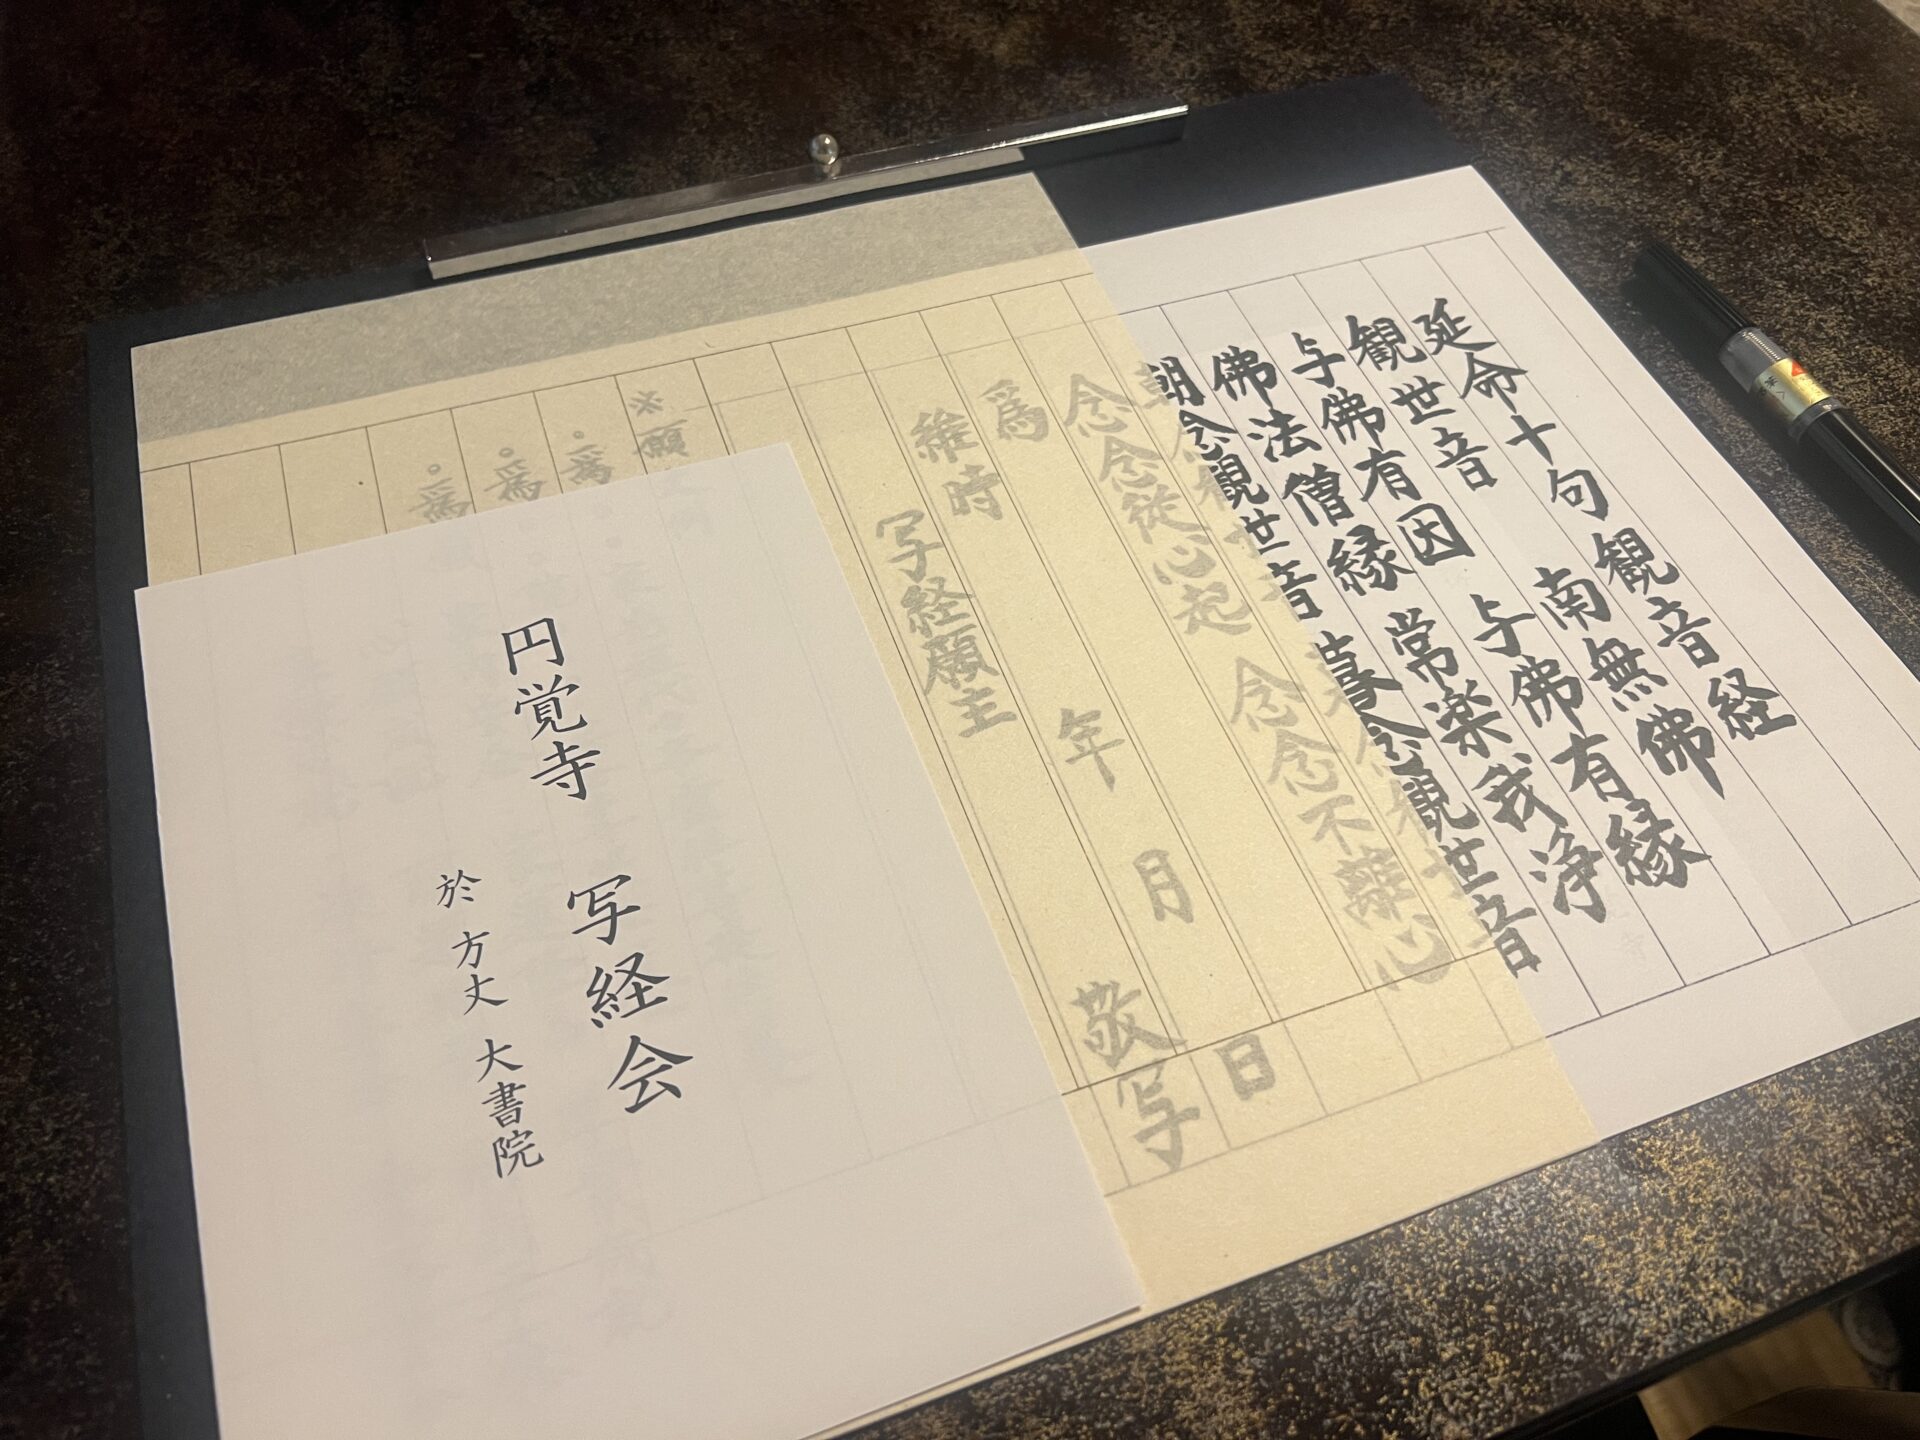 延命十句観音経
観世音 南無佛
与佛有因 与佛有縁
佛法僧縁 常楽我浄
朝念観世音 暮念観世音
念念従心起 念念不離心
爲
維時 年 月 日
写経願主 敬写
※願
円覚寺 写経会
於 方丈 大書院